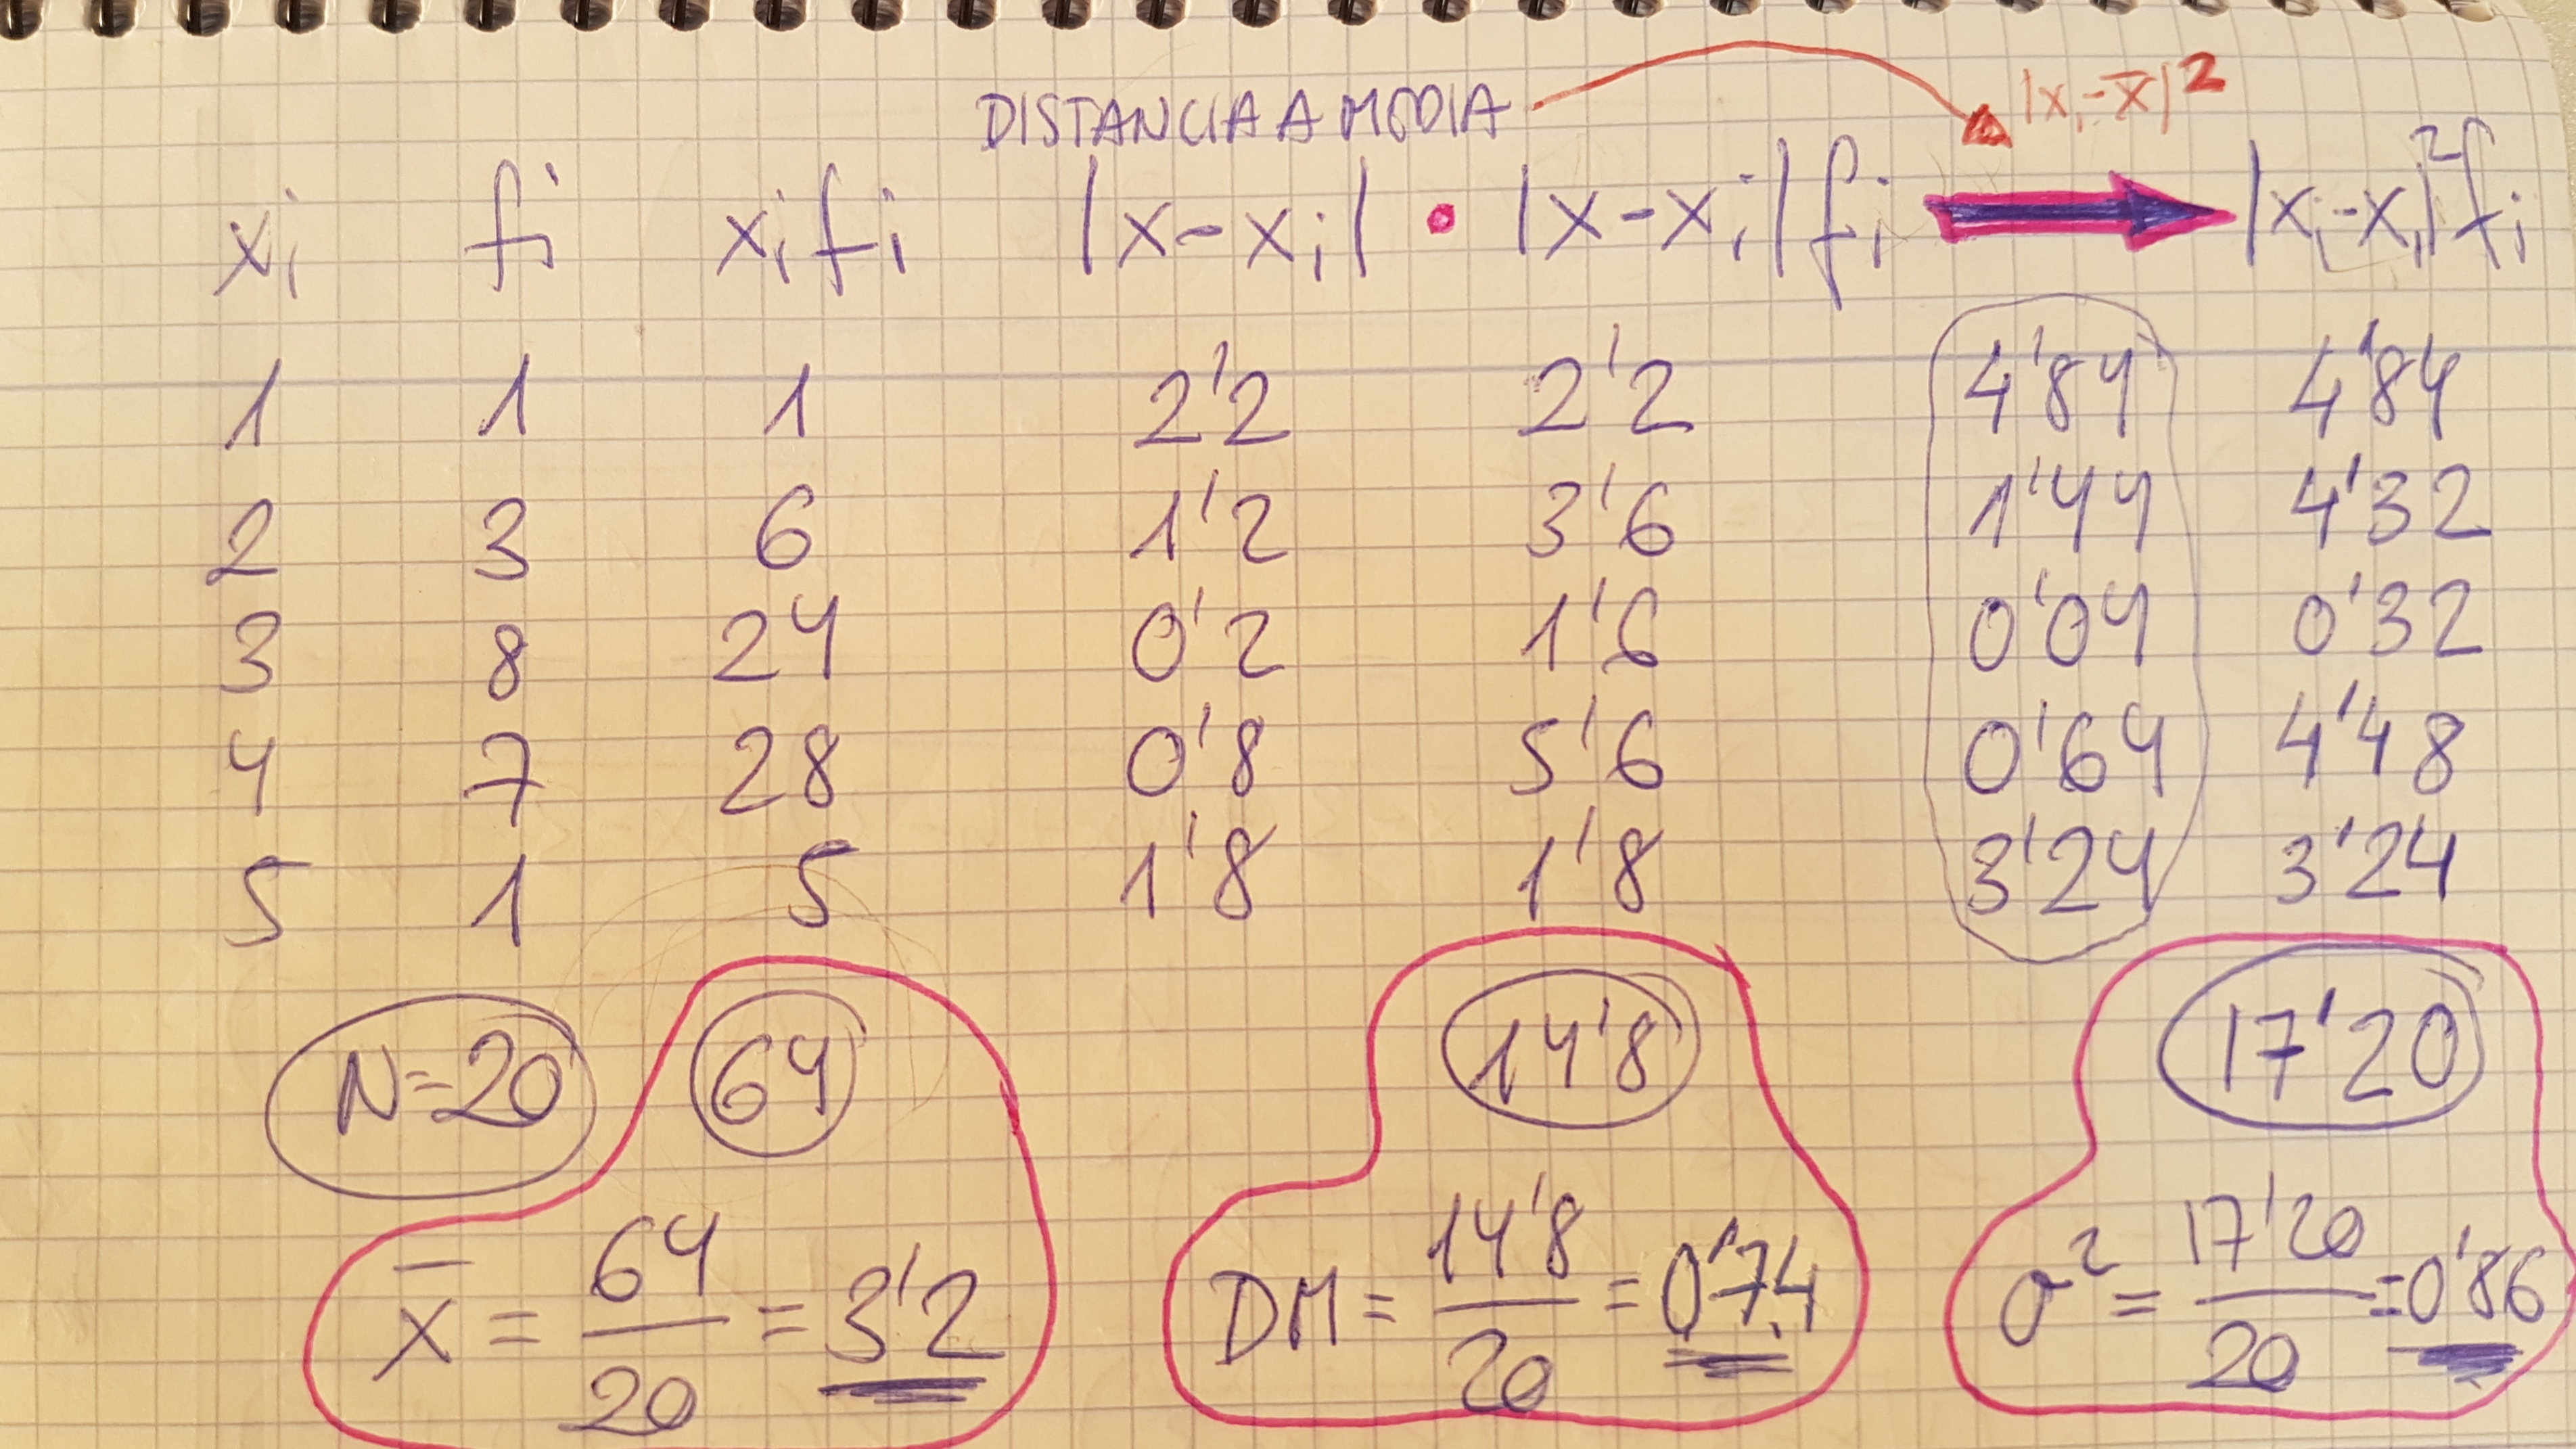 DISTANCIA A MEDIA |xᵢ-x̅|²
xᵢ fᵢ xᵢfᵢ |x-xᵢ| • |x-xᵢ|fᵢ |xᵢ-xᵢ|²fᵢ
1 1 1 2'2 2'2 4'84 4'84
2 3 6 1'2 3'6 1'44 4'32
3 8 24 0'2 1'6 0'04 0'32
4 7 28 0'8 5'6 0'64 4'48
5 1 5 1'8 1'8 3'24 3'24
N=20 64 14'8 17'20
x̅ = 64/20 = 3'2 DM = 14'8/20 = 0'74 σ² = 17'20/20 = 0'86